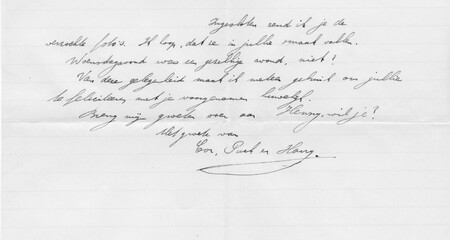 Ingesloten zend ik je de
verzochte foto's. Ik hoop, dat ze in jullie smaak vallen.
Woensdagavond was een gezellige avond, niet?
Van deze gelegenheid maak ik meteen gebruik om jullie
te feliciteren met je voorgenomen huwelijk.
Breng mijn groeten over aan Henny, wil je?
Met groeten van
Cor, Puck en Hany.